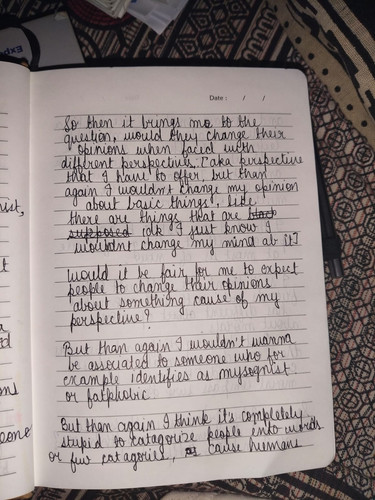 Date : / /
So then it brings me to the
question, would they change their
opinions when faced with
diffrent perspectives. [aka perspective
that I have to offer, but than
again I wouldn't change my opinion
about basic things, like
there are things that are black
supposed idk I just know I
wouldnt change my mind ab it]
Would it be fair for me to expect
people to change their opinions
about something cause of my
perspective?
But than again I wouldn't wanna
be associated to someone who for
example identifies as mysognist
or fatphobic.
But then again I think it's completely
stupid to catagorize people into words
or few catagories, cause humans
nist,
t
ed
ons
eone